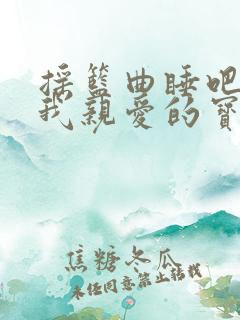 揺籃曲睡吧
我親愛的寶
焦糖冬瓜
未任同意禁止轉載